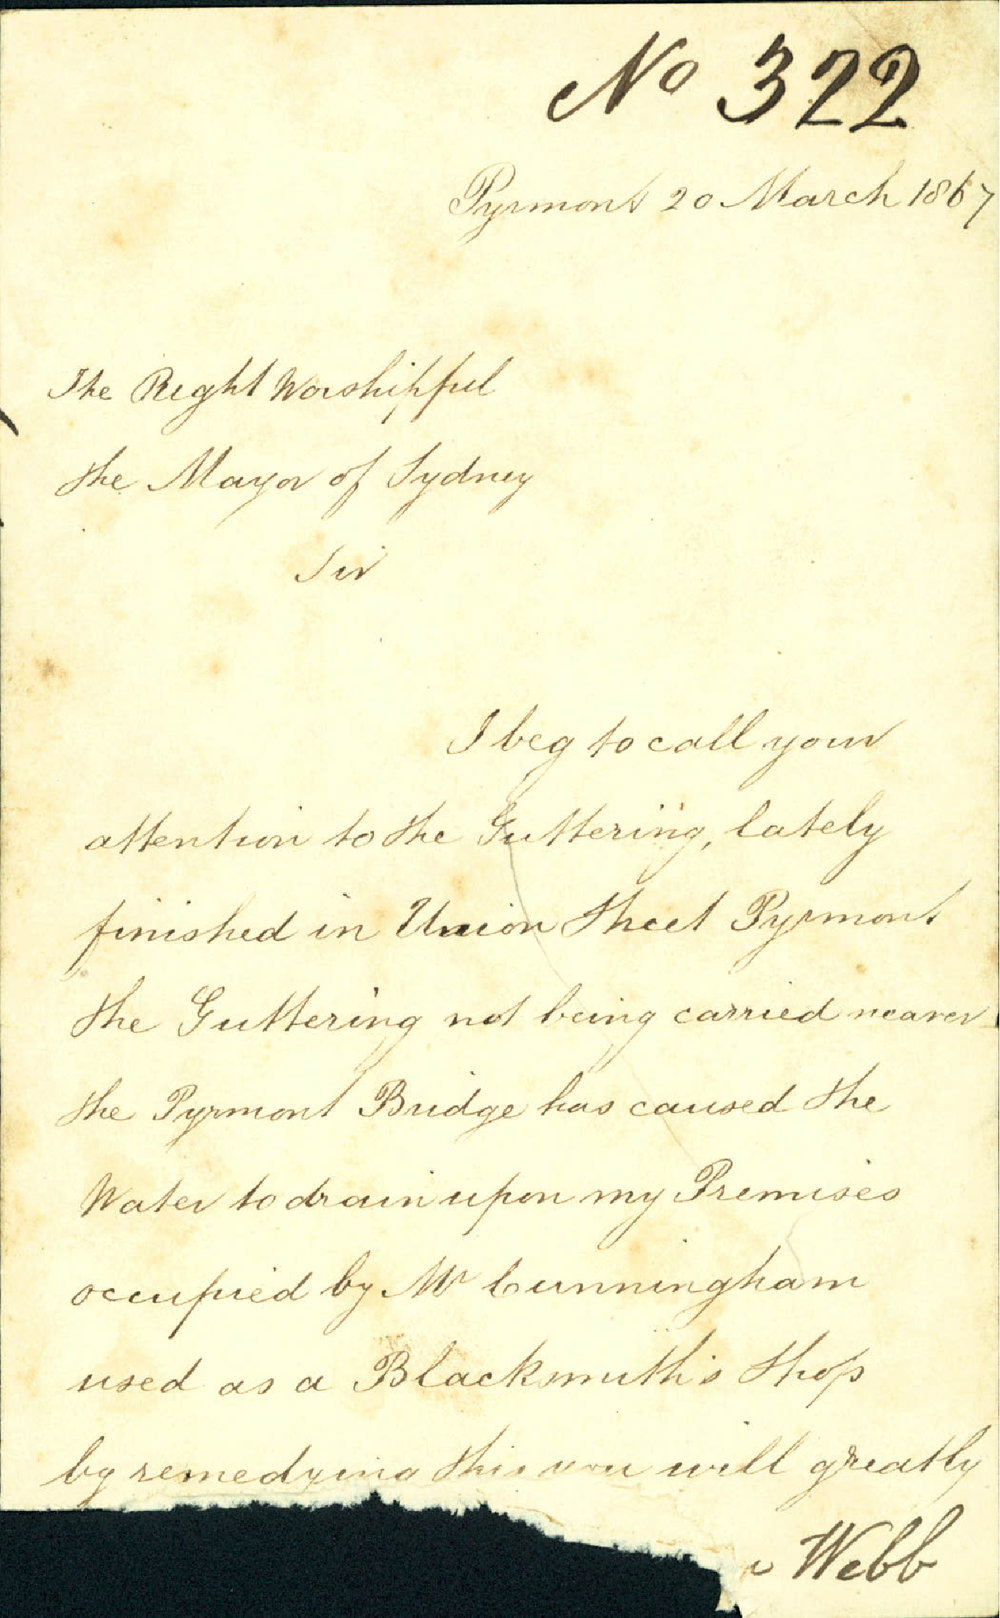 No 322
Pyrmont 20 March 1867
The Right Worshipful
the Mayor of Sydney
Sir
I beg to call your
attention to the Guttering, lately
finished in Union Street Pyrmont
the Guttering not being carried nearer
the Pyrmont Bridge has caused the
Water to drain upon my Premises
occupied by Mr Cunningham
used as a Blacksmith's Shop
by remedying this you will greatly
Webb